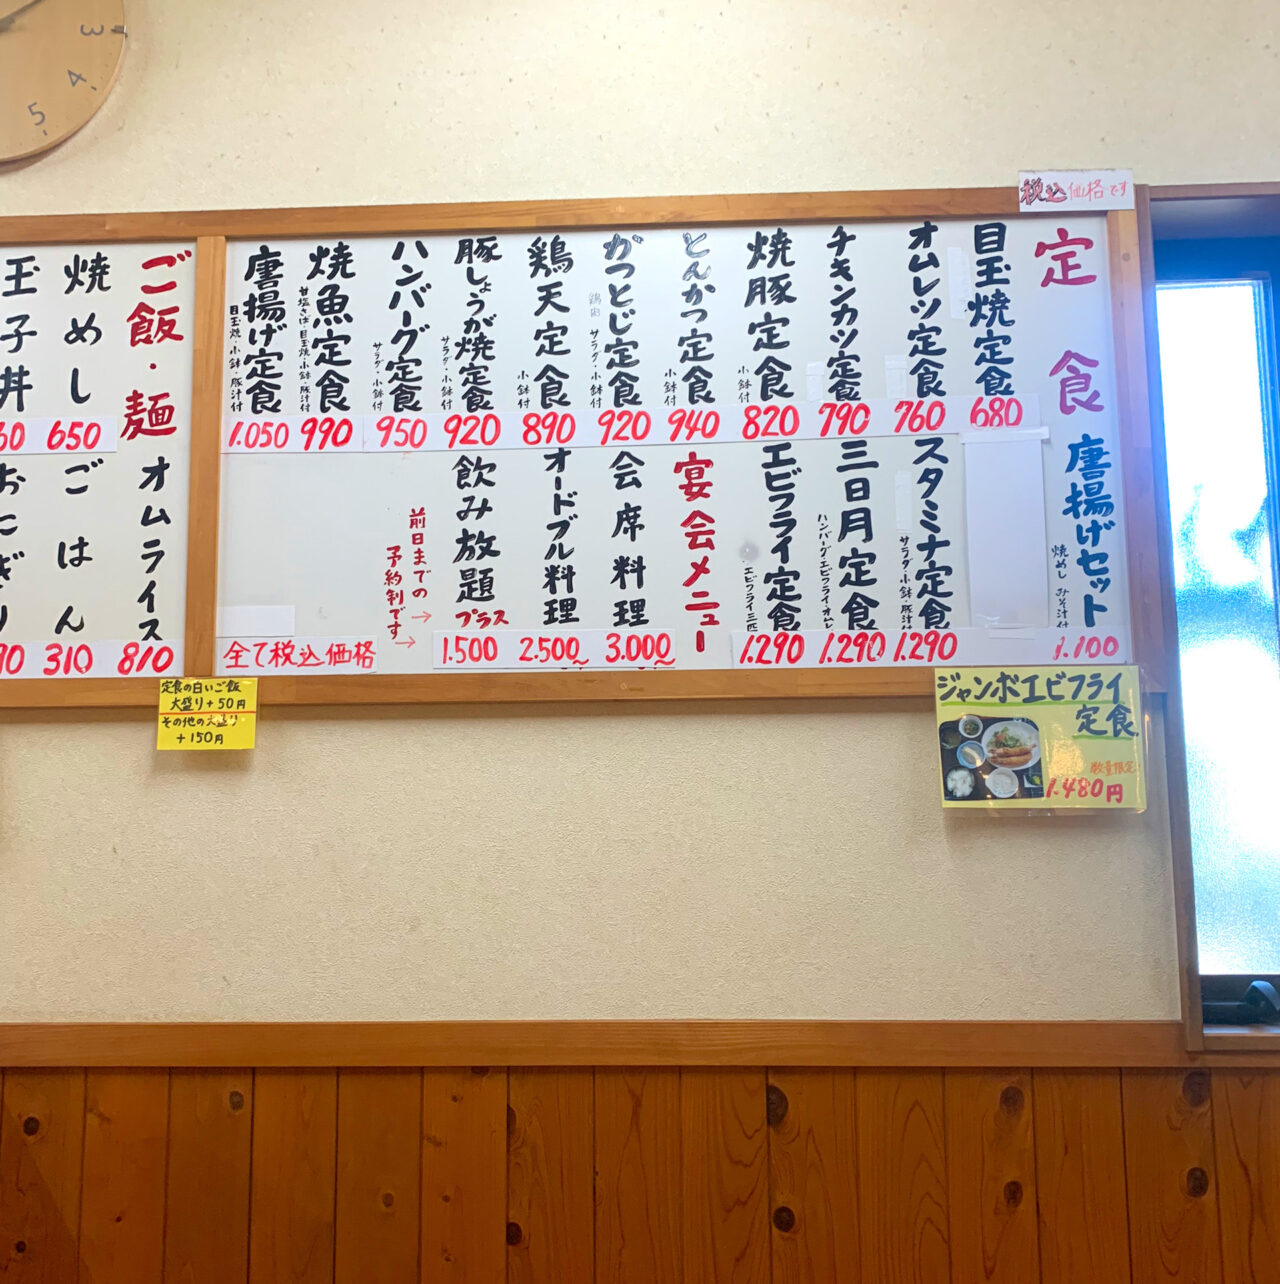 税込価格です
定食
目玉焼定食
680
オムレツ定食
760
チキンカツ定食
790
焼豚定食
小鉢付
820
とんかつ定食
小鉢付
940
がつとじ定食
鶏肉 サラダ・小鉢付
920
鶏天定食
小鉢付
890
豚しょうが焼定食
サラダ・小鉢付
920
ハンバーグ定食
サラダ・小鉢付
950
焼魚定食
甘塩さば・目玉焼・小鉢・豚汁付
990
唐揚げ定食
目玉焼・小鉢・豚汁付
1.050
唐揚げセット
焼めし みそ汁付
1.100
スタミナ定食
サラダ・小鉢・豚汁付
1.290
三日月定食
ハンバーグ・エビフライ・オムレ
1.290
エビフライ定食
・エビフライ三匹
1.290
宴会メニュー
会席料理
3.000~
オードブル料理
2.500~
飲み放題
プラス
1.500
前日までの→
予約制です→
全て税込価格
ご飯・麺
焼めし
650
玉子丼
60
オムライス
810
ごはん
310
おにぎり
90
定食の白いご飯
大盛り+50円
その他の大盛り
+150円
ジャンボエビフライ
定食
数量限定
1.480円
3
4
5